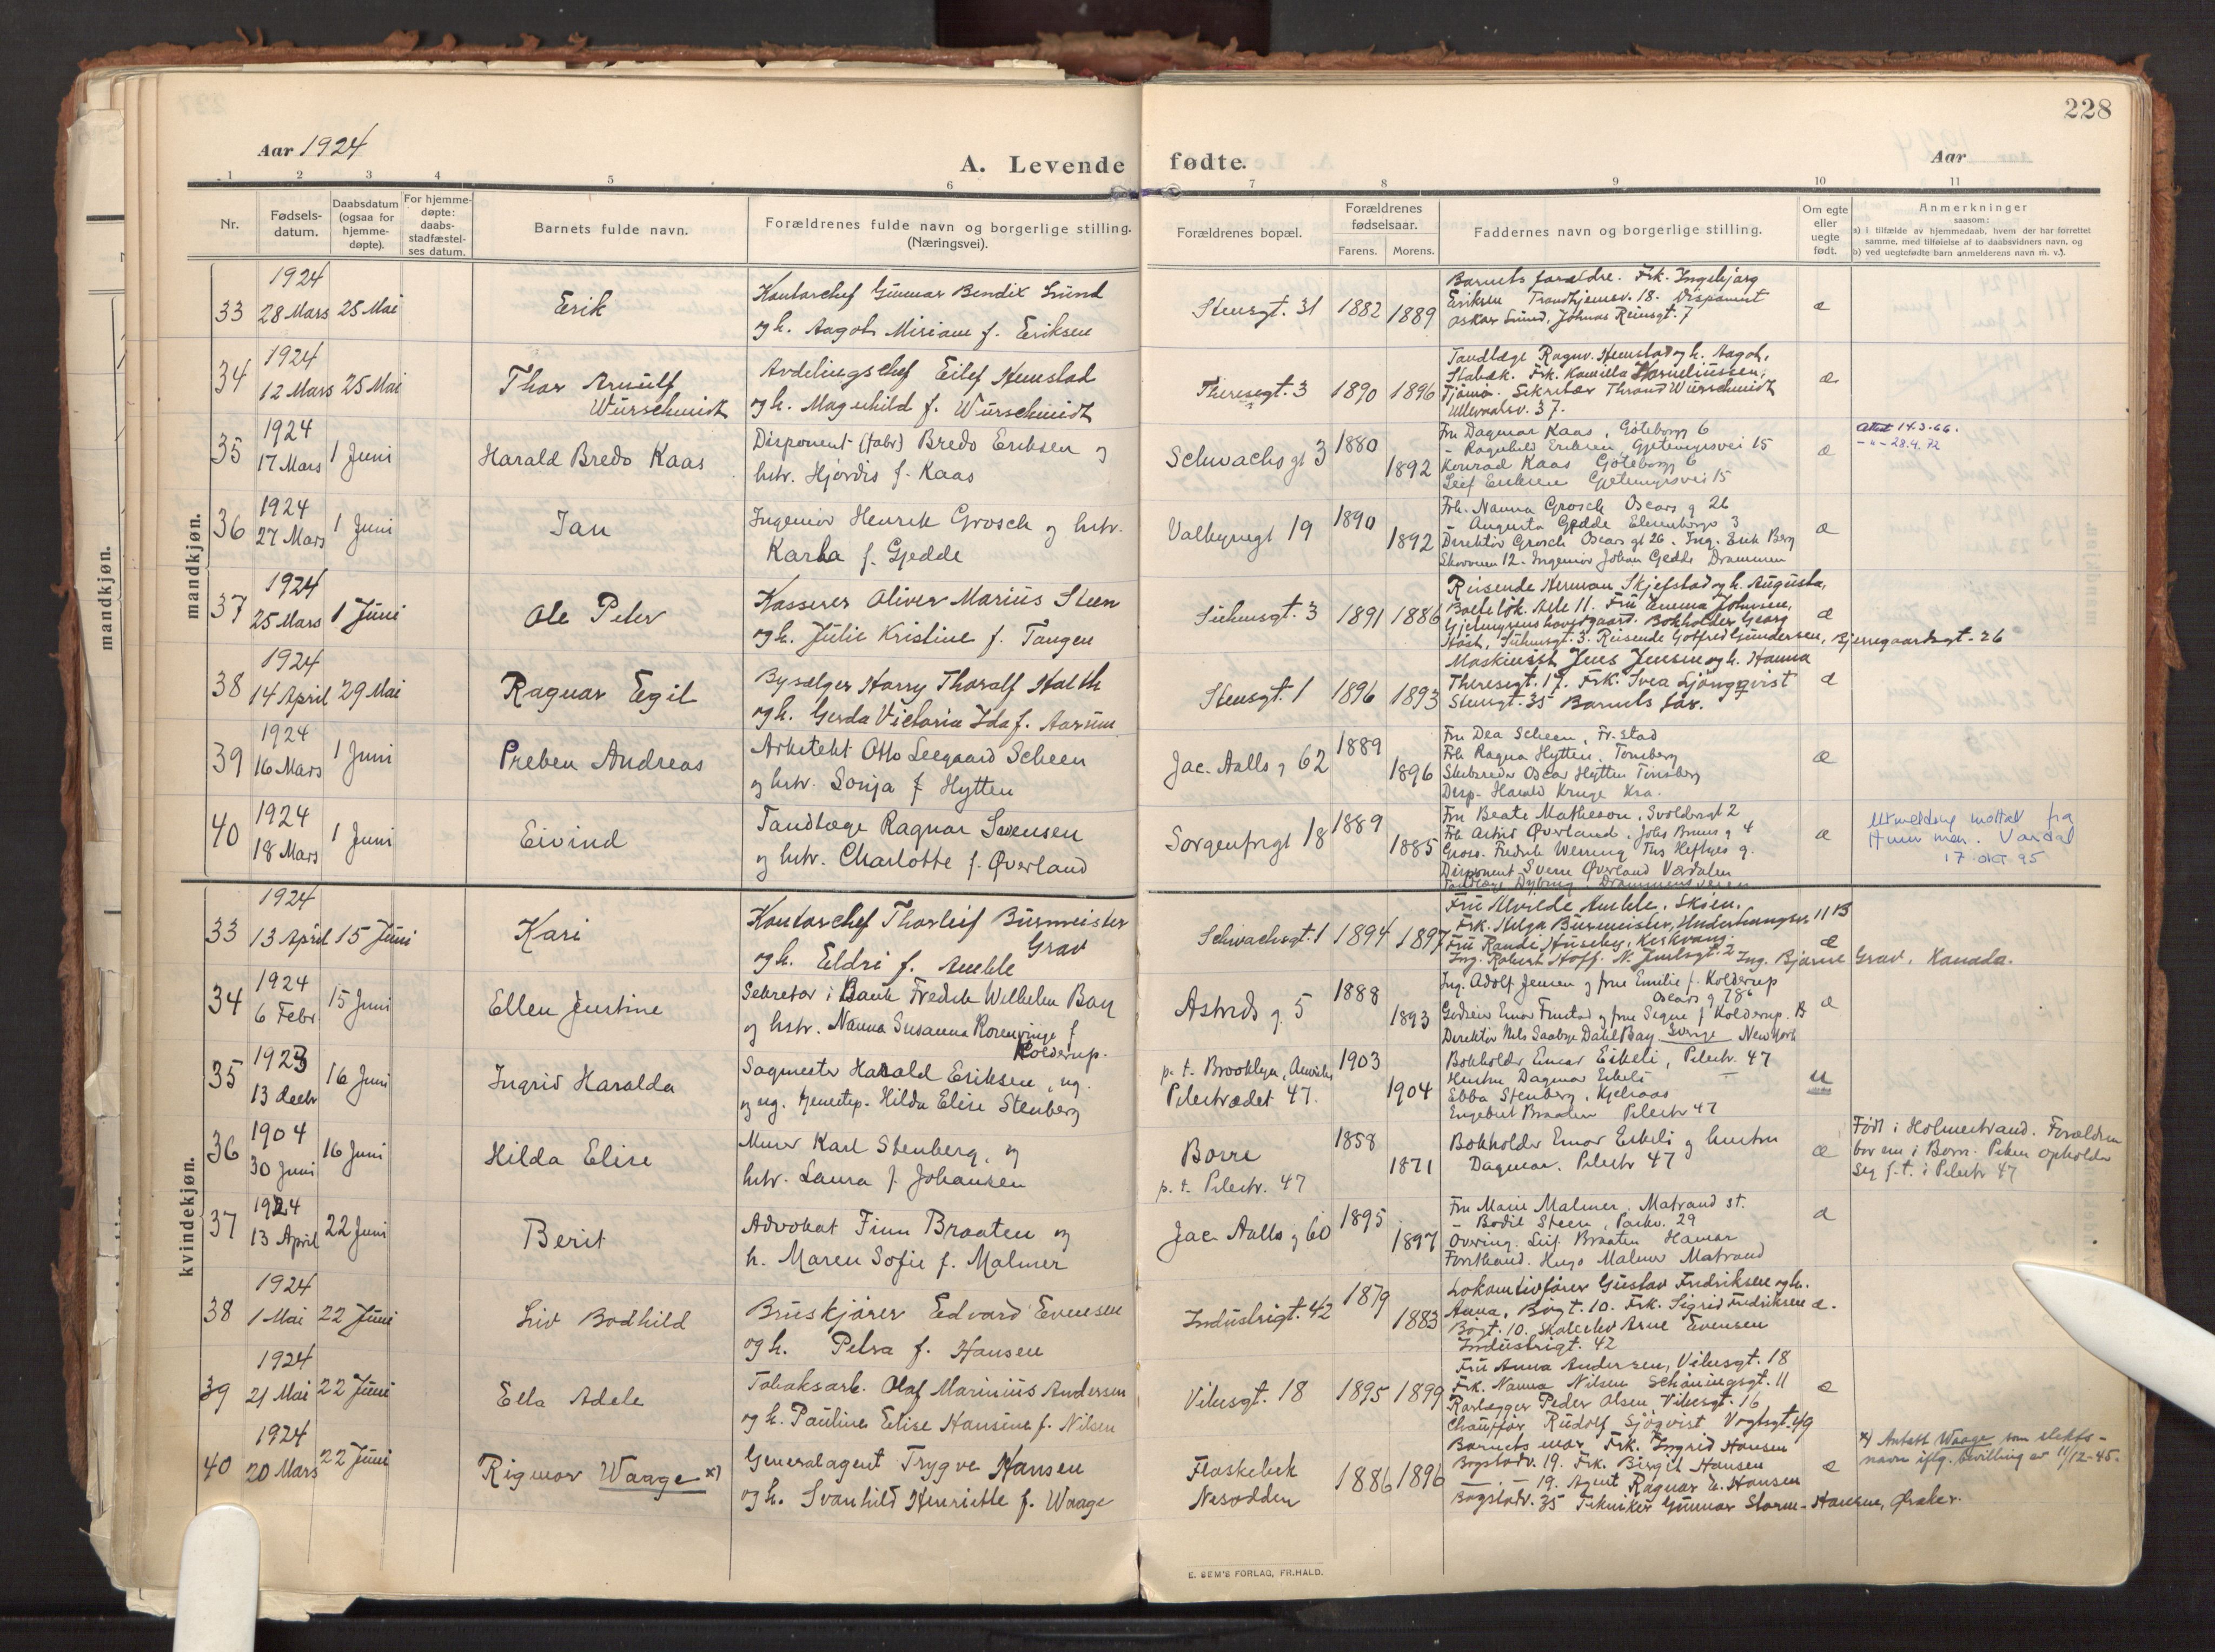 228
Aar 1924
A. Levende fødte.
Aar
1 2 3 4 5 6 7 8 9 10 11
Nr.
Fødsels-
datum.
Daabsdatum
(ogsaa for
hjemme-
døpte).
For hjemme-
døpte:
daabs-
stadfæstel-
ses datum.
Barnets fulde navn.
Forældrenes fulde navn og borgerlige stilling.
(Næringsvei).
Forældrenes bopæl.
Forældrenes
fødselsaar.
Farens. Morens.
Faddernes navn og borgerlige stilling.
Om egte
eller
uegte
født.
Anmerkninger
saasom:
a) i tilfælde av hjemmedaab, hvem der har forrettet
samme, med tilføielse af to daabsvidners navn, og
b) ved uegtefødte barn anmelderens navn m. v.).
mandkjøn.
mandkjøn.
1924
33 28 Mars 25 Mai
Erik
Kontorchef Gunnar Bendix Lund
og h. Aagot Miriam f. Eriksen
Stensgt. 31 1882 1889
Barnets forældre. Frk. Ingebjørg
Eriksen Trondhjemsv. 18. Disponent
Oskar Lund, Johnas Reinsgt. 7
æ
1924
34 12 Mars 25 Mai
Thor Arnulf
Würschmidt
Avdelingschef Eilef Hemstad
og h. Magnhild f. Würschmidt
Theresegt. 3 1890 1896
Tandlæge Ragnv. Hemstad og h. Aagot,
Stabæk. Frk. Kamilla Korneliussen,
Tjømø. Sekretær Thrond Würschmidt
Ullevaalsv. 37.
æ
1924
35 17 Mars 1 Juni
Harald Bredo Kaas
Disponent (fabr) Bredo Eriksen og
hstr. Hjørdis f. Kaas
Schwachs gt 3 1880 1892
Fru Dagmar Kaas, Göteborgg 6
- Ragnhild Eriksen, Gjetemyrsvei 15
Konrad Kaas Göteborgg 6
Leif Eriksen Gjetemyrsvei 15
æ
Attest 14.3.66.
- " - 28.9.72
1924
36 27 Mars 1 Juni
Jan
Ingeniør Henrik Grosch og hstr.
Karla f. Gjedde
Valkyriegt 19 1890 1892
Frk. Nanna Grosch Oscars g 26
- Augusta Gjedde 3
Direktør Grosch Oscars gt 26. Ing. Erik Berg
12. Ingeniør Johan Gjedde Drammen
æ
1924
37 25 Mars 1 Juni
Ole Peter
Kasserer Oliver Marius Steen
og h. Julie Kristine f. Tangen
Suhmsgt. 3 1891 1886
Reisende Herman Skjefstad og h. Augusta,
11. Fru Emma Johnsen,
Gjetmyrens hovedgaard. Bokholder Georg
Høst, Suhmsgt. 3. Reisende Gotfred Gundersen, Bjerregaardsgt. 26
æ
1924
38 14 April 29 Mai
Ragnar Egil
Bysælger Harry Thoralf Holth
og h. Gerda Victoria Ida f. Aarum
Stensgt. 1 1896 1893
Maskinist Jens Jensen og h. Hanna
Theresegt. 17. Frk. Svea Ljöngqvist
Stensgt. 35 Barnets far.
æ
1924
39 16 Mars 1 Juni
Preben Andreas
Arkitekt Otto Leegaard Scheen
og hstr. Sonja f Hytten
Jac. Aalls g 62 1889 1896
Fru Dea Scheen, Fr.stad
Frk Ragna Hytten, Tønsberg
Skibsreder Oscar Hytten Tønsberg
Disp. Harald Kruge Kra.
æ
1924
40 18 Mars 1 Juni
Eivind
Tandlæge Ragnar Svensen
og hstr. Charlotte f. Øverland
Sorgenfrigt 18 1889 1885
Fru Beate Matheson, Svoldergt 2
Frk Astrid Øverland, Johs Bruns g 4
Gross. Fredrik Werring Ths Heftyes g.
Disponent Sverre Øverland Værdalen
æ
Utmelding mottat fra
Vardal
17 okt 95
kvindekjøn.
1924
33 13 April 15 Juni
Kari
Kontorchef Thorleif Burmeister
Grav
og h. Eldri f. Amble
Schwachsgt. 1 1894 1897
Fru Alvilde Amble, Skien.
Frk. Helga Burmeister, 11 B
Fru Randi Huseby, Kirkevang.
Ing. Robert Hoff. N. Juelsgt. 2 Ing. Bjarne Grav. Kanada.
æ
1924
34 6 Febr. 15 Juni
Ellen Justine
Sekretær i Bank Fredrik Wilhelm Bay
og hstr. Nanna Susanna Rosenvinge f
Kolderup.
Astrids g. 5 1888 1893
Ing. Adolf Jensen og frue Emilie f. Kolderup
Oscars g 78b
Godseier Einar Frustad og frue Signe f Kolderup.
Direktør Nils Saabye Dahl Bay Sverige New York
æ
1923
35 13 decbr 16 Juni
Ingrid Haralda
Sagmester Harald Eriksen, ug.
og ug. tjenestep. Hilda Elise Stenberg
p. t. Brooklyn, Amerika
Pilestrædet 47. 1903 1904
Bokholder Einar Eikeli, Pilestr. 47
Hustru Dagmar Eikeli —
Ebba Stenberg, Kjelsaas
Engebret Braaten Pilestr 47
u
1904
36 30 Juni 16 Juni
Hilda Elise
Murer Karl Stenberg, og
hstr. Laura f. Johansen
Borre
p. t. Pilestr. 47 1858 1871
Bokholder Einar Eikeli og hustru
Dagmar. Pilestr 47
æ
Født i Holmestrand. Forældrene
bor nu i Borre. Piken opholder
seg f.t. i Pilestr 47
1924
37 13 April 22 Juni
Berit
Advokat Finn Braaten og
h. Maren Sofie f. Malmer
Jac Aalls g 60 1895 1897
Fru Marie Malmer, Matrand st.
- Bodil Steen, Parkv. 29
Overing. Leif Braaten Hamar
Forstkand. Hugo Malmer Matrand
æ
1924
38 1 Mai 22 Juni
Liv Bodhild
Bruskjører Edvard Evensen
og h. Petra f. Hansen
Industrigt. 42 1879 1883
Lokomotivfører Gustav Fredriksen og h.
Anna, Bogt. 10. Frk. Sigrid Fredriksen
Bogt. 10. Skoleelev Arne Evensen
Industrigt. 42
æ.
1924
39 21 Mai 22 Juni
Ella Adele
Tobaksarb. Olaf Marinius Andersen
og h. Pauline Elise Hansine f. Nilsen
Vibesgt. 18 1895 1899
Fru Anna Andersen, Vibesgt. 18
Frk. Nanna Nilsen Schøningsgt. 11
Rørlægger Peder Olsen Vibesgt. 16
Chauffør Rudolf Sjöqvist Vogtsgt. 49
æ
1924
40 20 Mars 22 Juni
Rigmor Waage x)
Generalagent Trygve Hansen
og h. Svanhild Henriette f. Waage
Flaskebek
Nesodden 1886 1896
Barnets mor Frk. Ingrid Hansen
Bogstadv. 19. Frk. Birgit Hansen
— . — 19. Agent Ragnar E. Hansen
Bogstadv. 35 Tekniker Gunnar Storm-Hansen, Øraker.
æ
x) Antatt Waage som slekts-
navn iflg. bevilling av 11/12-45.
E. SEM'S FORLAG, FR.HALD.